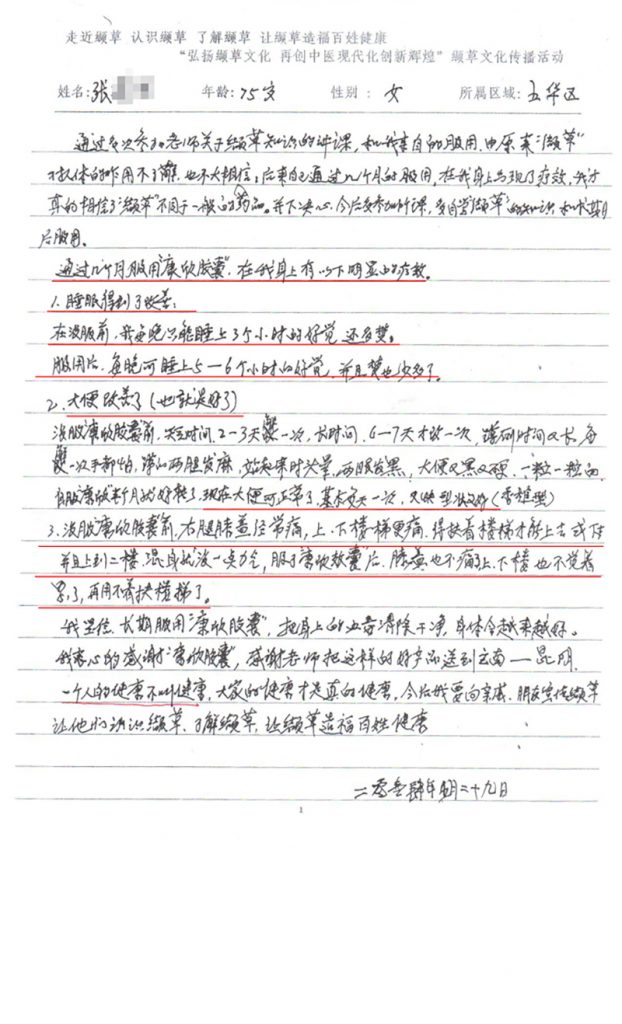 走近缬草 认识缬草 了解缬草 让缬草造福百姓健康
“弘扬缬草文化 再创中医现代化创新辉煌”缬草文化传播活动
姓名:张 年龄:75岁 性别: 女 所属区域:五华区
通过多次参加老师关于缬草知识的讲课,和我亲自的服用,由原来“缬草”
对抗体的作用不了解,也不太相信;后来自己通过几个月的服用,在我身上出现了疗效,我才
真的相信了“缬草”不同于一般的药品。并下决心,今后多参加听课,多自学“缬草”的知识和长期
服用。
通过几个月服用“康欣胶囊”,在我身上有以下明显的疗效。
1.睡眠得到了改善:
在没服前,我每晚只能睡上3个小时的好觉还多梦。
服用后,每晚可睡上5—6个小时的好觉,并且梦也少多了。
2.大便改善了(也就是好了)
没服“康欣胶囊”前,短时间2—3天一次,长时间,6—7天才一次,蹲厕时间又长,每
一次手都怕,蹲的两腿发麻,站起来时头晕,两眼发黑,大便又黑又硬,一粒一粒的
自服“康欣”半个月就好转了,现在大便可正常了,基本每天一次,又快型状又好(香蕉型)
3.没服“康欣胶囊”前,右腿膝盖经常痛,上、下楼梯更痛,得扶着楼梯才能上去或下
并且上到二楼,混身就没一点力气,服了康欣胶囊后,膝盖也不痛了,上、下楼也不觉着
累了,再用不着扶楼梯了。
我坚信,长期服用“康欣胶囊”,把身上的血毒清除干净,身体会越来越好。
我衷心的感谢“康欣胶囊”,感谢老师把这样的好产品送到云南—昆明,
一个人的健康不叫健康,大家的健康才是真的健康,今后我要向亲戚、朋友宣传缬草
让他们认识缬草,了解缬草,让缬草造福百姓健康
二零壹肆年 二十九日
1